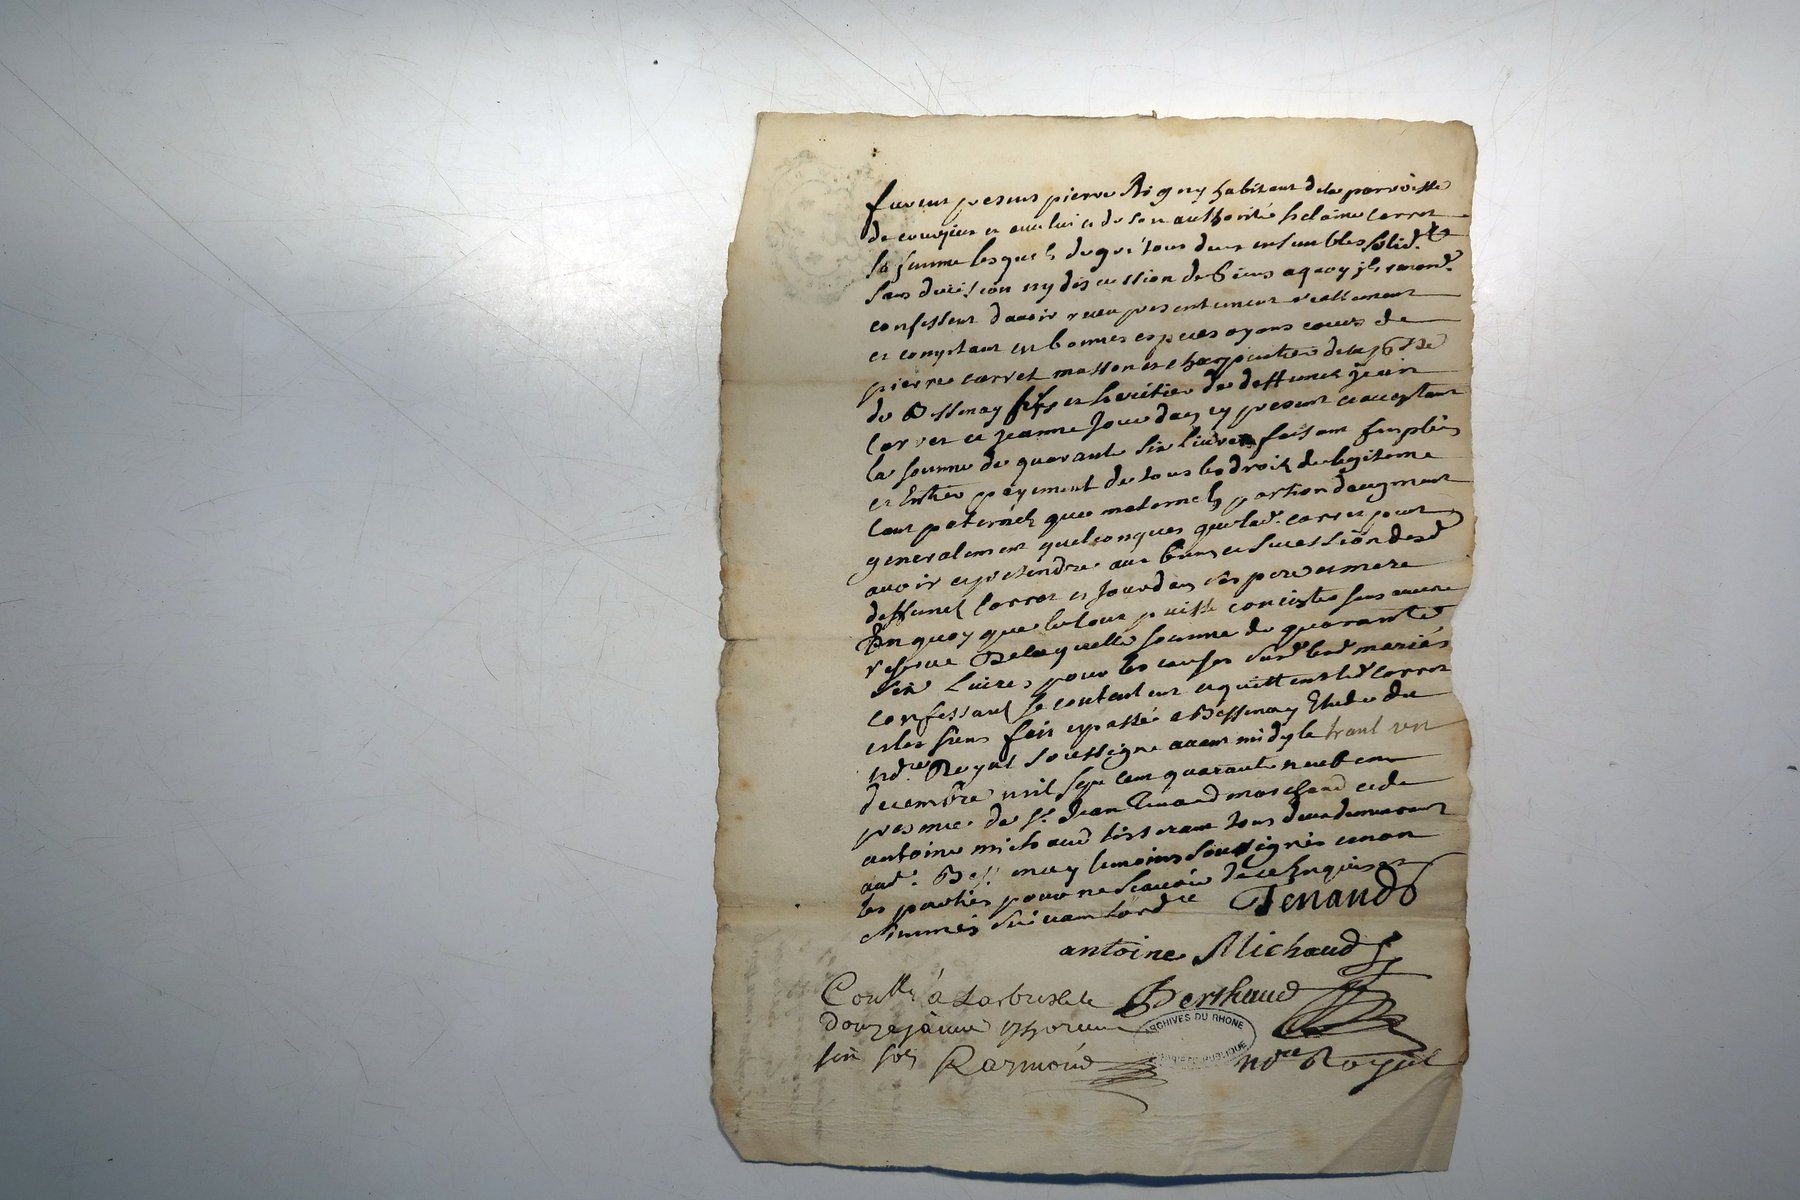 furent presens pierre Rigny habitant dela parroisse
de courzieu et avec lui et de son authorité helaine Carret
sa femme lesquels de gré tous deux ensembles solid.t &
sans division ny discussion de biens a quoy ils renon.t
confessent davoir receu presentement reellement
et comptant en bonnes especes ayans cours de
pierre carret masson et charpentier de la p.sse
de Bessenay fils et heritier de deffunct jean
Carret et jeanne Jourdan cy present et acceptant
la somme de quarante six Livres faisant l'emplein
et Entier payement de tous les droits de legitime
tant paternels que maternels portion daugment
generalement quelconques que lad. carret peut
avoir et pretendre aux biens et sucession desd
deffunct Carret et Jourdan ses pere et mere
En quoy que le tout puisse concister sans aucune
reserve De laquelle somme de quarante
six Livres pour les causes susd lesd mariés
confessant se contentent et quittent led Carret
et les siens fait et passé a Bessenay Etude du
no.re Royal soussigné avant midy le trant un
decembre mil sept cent quarante neuf en
presence de s.r Jean Tenaud marchand et de
antoine michaud tisserant tous deux demeurant
aud. Bess enay temoins soussignés et non
les parties pour ne scavoir de ce Enquis et
sommés suivant l'ord.ce Tenaud
antoine Michaud
Con.llé à Larbresle le Berthaud
douze janvier
six sols Raymond no.re Royal
ARCHIVES DU RHONE
PUBLIQUE